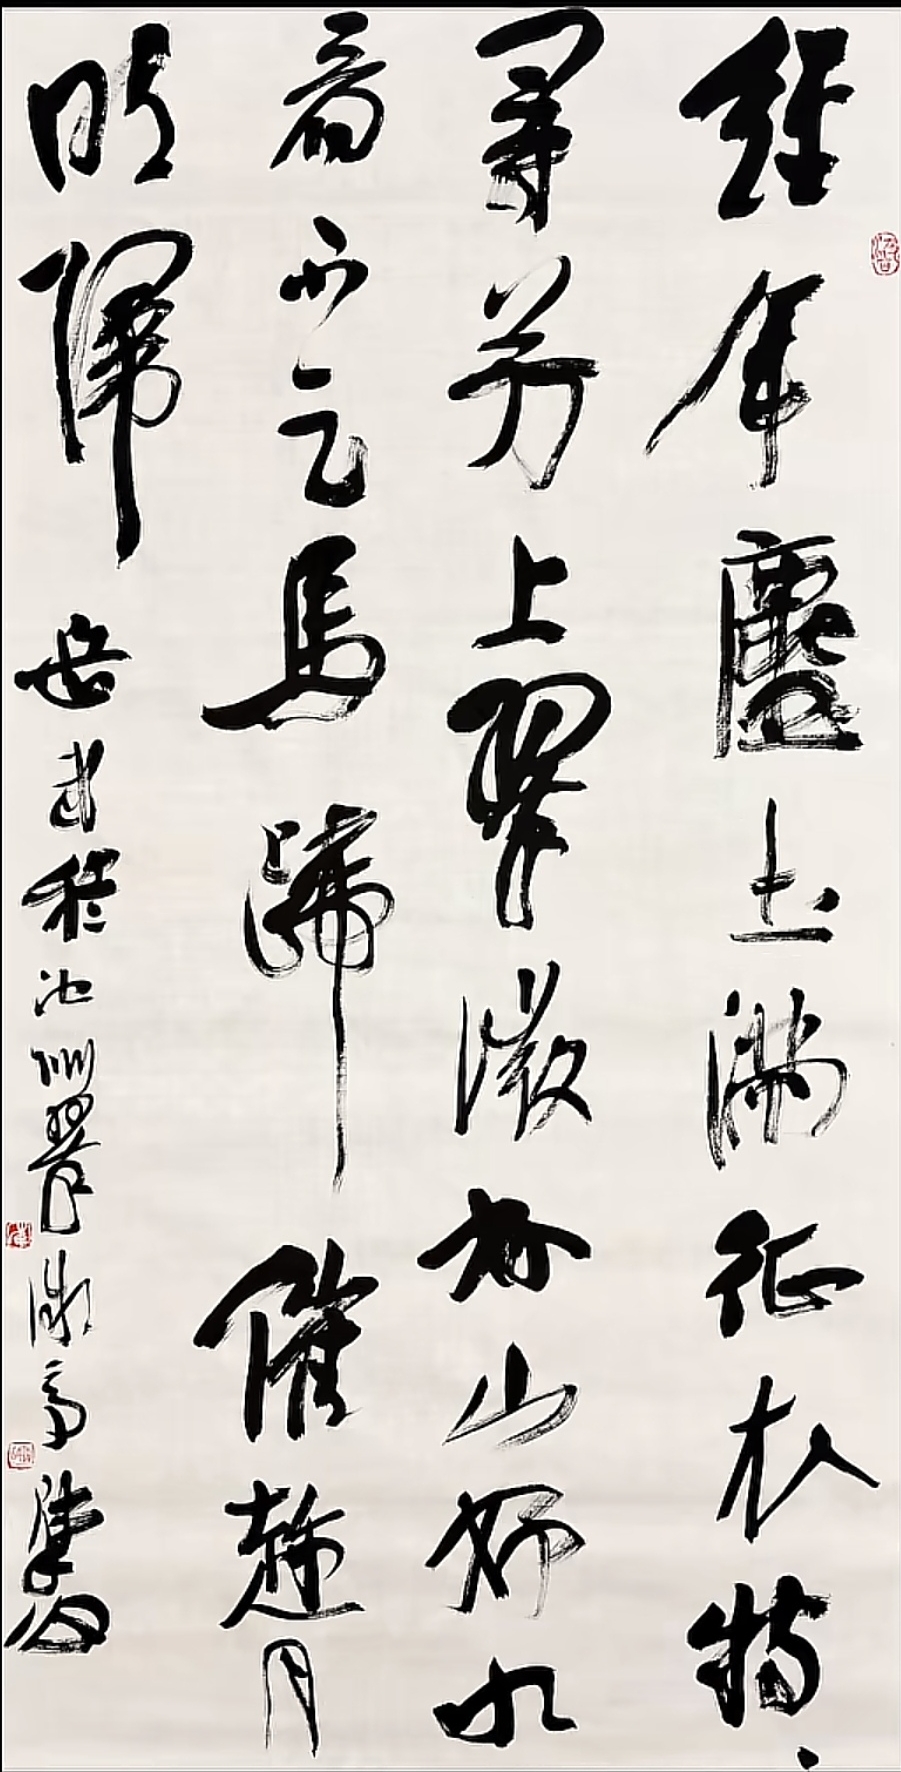 經年塵土滿征衣特、
尋芳上翠微好山好水
看不足馬蹄催趁月
明歸 岳武穆池州翠微亭 陳